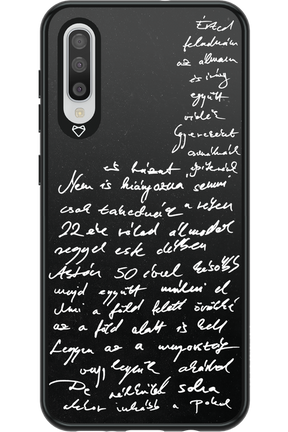 Érted
feladnám
az álmaim
és írnág
együtt
vidék
Gyerekeket
csinálnánk
és házat építenék
Nem is hiányozna semmi
csak takednéz a rejtem
22 éve rólad álmodok
reggel este délben
Aztán 50 évvel később
majd együtt múlni el
Ami a föld felett örökké
az a föld alatt is kell
Legyen az a mennyország
vagy legyünk akárhol
De nélküled soha
akkor inkább a pokol